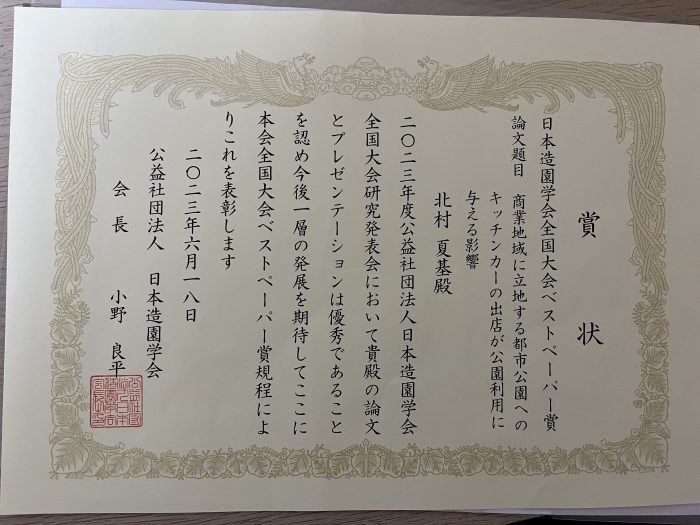 賞状
日本造園学会全国大会ベストペーパー賞
論文題目 商業地域に立地する都市公園への
キッチンカーの出店が公園利用に
与える影響
北村 夏基殿
二〇二三年度公益社団法人日本造園学会
全国大会研究発表会において貴殿の論文
とプレゼンテーションは優秀であること
を認め今後一層の発展を期待してここに
本会全国大会ベストペーパー賞規程によ
りこれを表彰します
二〇二三年六月一八日
公益社団法人 日本造園学会
会長 小野 良平